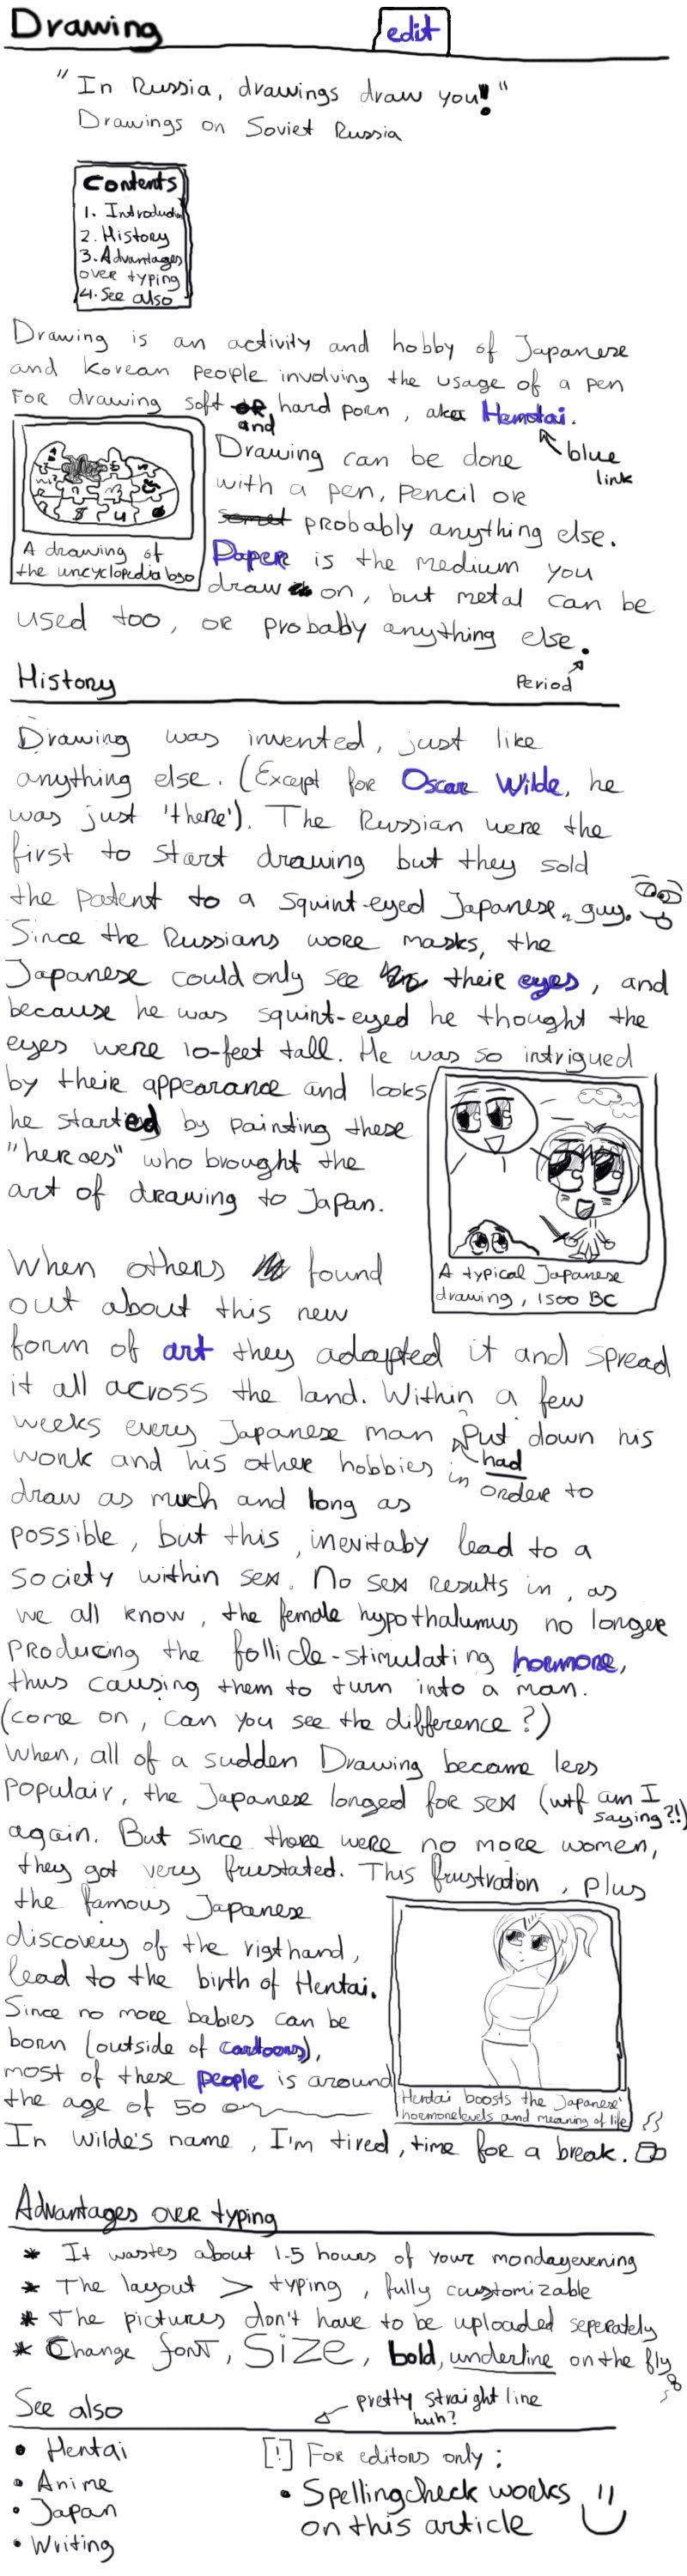 Drawing
edit
"In Russia, drawings draw you!"
Drawings on Soviet Russia
Contents
1. Introduction
2. History
3. Advantages
over typing
4. See also
Drawing is an activity and hobby of Japanese
and Korean people involving the usage of a pen
for drawing soft and hard porn, aka Hentai.
blue
link
Drawing can be done
with a pen, pencil or
probably anything else.
Paper is the medium you
draw on, but metal can be
used too, or probably anything else.
A drawing of
the uncyclopedia logo
Period
History
Drawing was invented, just like
anything else. (Except for Oscar Wilde, he
was just 'there'). The Russian were the
first to start drawing but they sold
the patent to a squint-eyed Japanese guy.
Since the Russians wore masks, the
Japanese could only see their eyes, and
because he was squint-eyed he thought the
eyes were 10-feet tall. He was so intrigued
by their appearance and looks
he started by painting these
"heroes" who brought the
art of drawing to Japan.
A typical Japanese
drawing, 1500 BC
When others found
out about this new
form of art they adapted it and spread
it all across the land. Within a few
weeks every Japanese man put down his
had
work and his other hobbies in order to
draw as much and long as
possible, but this, inevitaby lead to a
society within sex. No sex results in, as
we all know, the female hypothalumus no longer
producing the follicle-stimulating hormone,
thus causing them to turn into a man.
(come on, can you see the difference?)
When, all of a sudden Drawing became less
populair, the Japanese longed for sex (wtf am I
saying?!)
again. But since there were no more women,
they got very frustated. This frustration, plus
the famous Japanese
discovery of the rigthand,
lead to the birth of Hentai.
Since no more babies can be
born (outside of cartoons),
most of these people is around
the age of 50 or
Hentai boosts the Japanese'
hormonelevels and meaning of life
In Wilde's name, I'm tired, time for a break.
Advantages over typing
* It wastes about 1.5 hours of your mondayevening
* The layout > typing, fully customizable
* The pictures don't have to be uploaded seperately
* Change font, Size, bold, underline on the fly
See also
pretty straight line
huh?
• Hentai
• Anime
• Japan
• Writing
[!] For editors only:
• Spellingcheck works
on this article